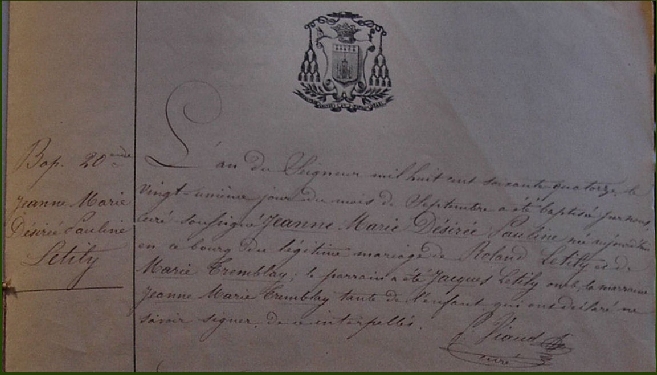 Bap. 20ème
Jeanne Marie
Désirée Pauline
Letily
L'an du Seigneur mil huit cent soixante quatorze, le
vingt-unième jour du mois de Septembre a été baptisée par nous,
curé soussigné Jeanne Marie Désirée Pauline née
en ce bourg du légitime mariage de Roland Letily et de
Marie Tremblay; le parrain a été Jacques Letily oncle la marraine
Jeanne Marie Tremblay tante de l'enfant qui ont déclaré ne
savoir signer de ce interpellés.
Viaud
curé